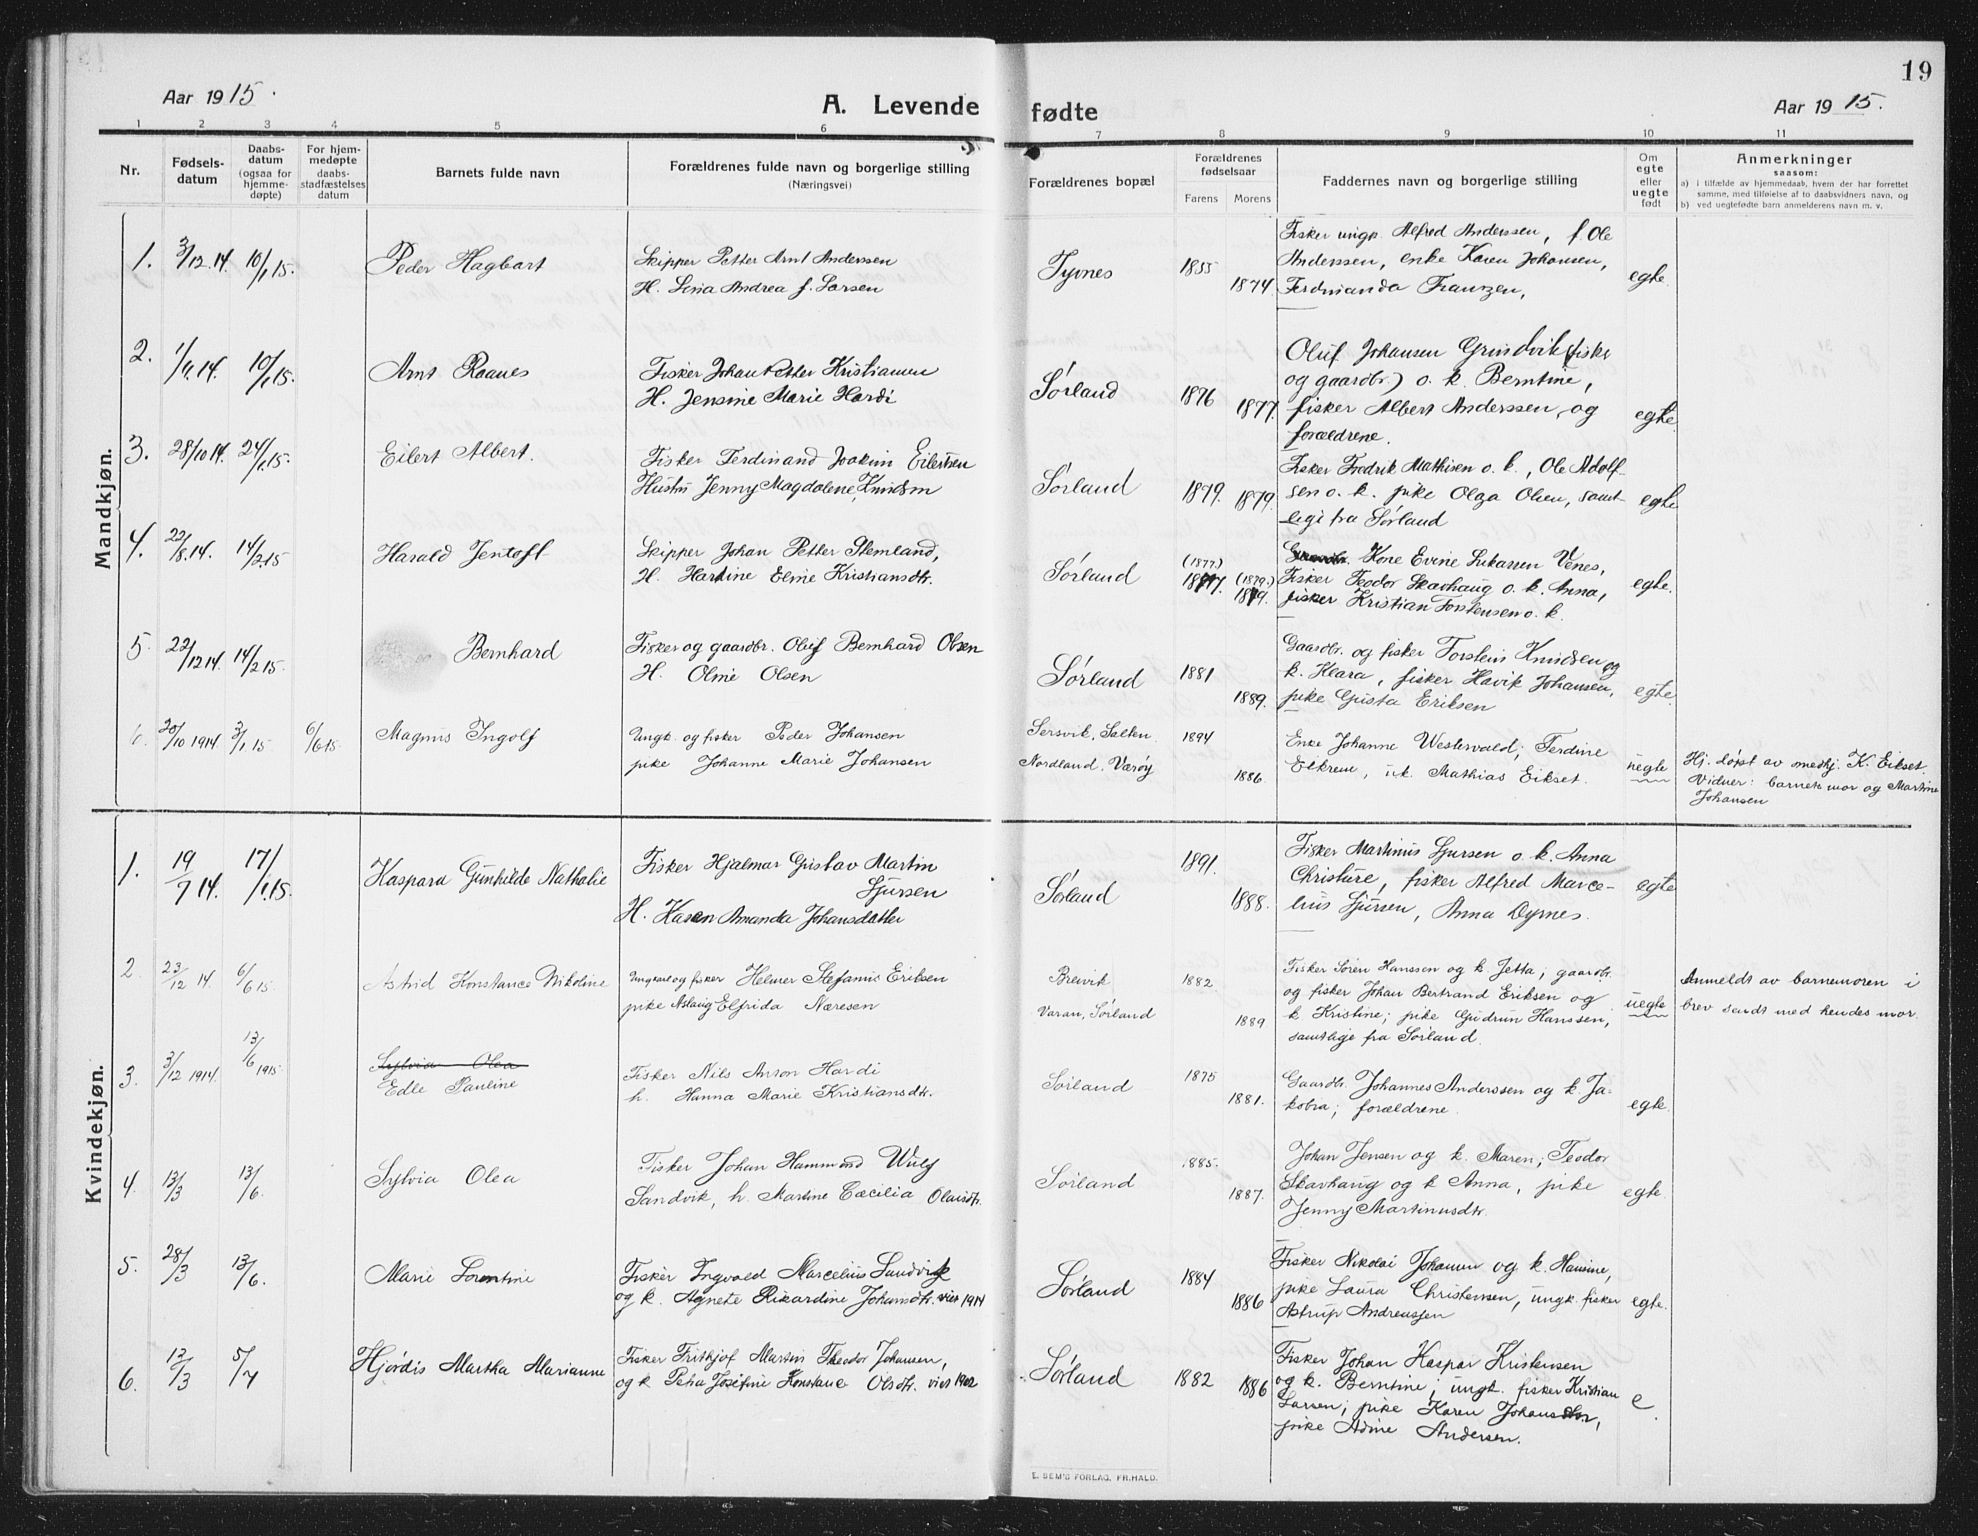 19
Aar 1915.
A. Levende fødte
Aar 1915.
1 2 3 4 5 6 7 8 9 10 11
Nr.
Fødsels-
datum
Daabs-
datum
(ogsaa for
hjemme-
døpte)
For hjem-
medøpte
daabs-
stadfæstelses
datum
Barnets fulde navn
Forældrenes fulde navn og borgerlige stilling
(Næringsvei)
Forældrenes bopæl
Forældrenes
fødselsaar
Farens Morens
Faddernes navn og borgerlige stilling
Om
egte
eller
uegte
født
Anmerkninger
saasom:
a) i tilfælde av hjemmedaab, hvem der har forrettet
samme, med tilføielse af to daabsvidners navn, og
b) ved uegtefødte barn anmelderens navn m. v.
Mandkjøn.
1. 3/12 14. 10/1 15. Peder Hagbart
Skipper Petter Arnt Anderssen
H. Lina Andrea f. Larsen
Tyvnes 1855 1874.
Fisker ungk. Alfred Anderssen, f. Ole
Anderssen, enke Karen Johansen,
Ferdinanda Frantzen,
egte.
2. 14. 10/1 15. Arnt Raanes
Fisker Johan Petter Kristiansen
H. Jensine Marie Hardi
Sørland 1876 1877.
Oluf Johansen Grindvik (fisker
og gaardbr.) o. k. Berntine,
fisker Albert Anderssen, og
forældrene.
egte.
3. 28/10 14. 24/1 15. Eilert Albert.
Fisker Ferdinand Joakim Eilertsen
Hustru Jenny Magdalene Knudsen
Sørland 1879. 1879.
Fisker Fredrik Mathisen o. k., Ole Adolf-
sen o. k. pike Olga Olsen, samt-
lige fra Sørland
egte
4. 22/8 14. 14/2 15 Harald Jentoft
Skipper Johan Petter Stemland,
H. Hartine Eline Kristiansdtr.
Sørland (1877.) 1877. (1879.) 1879.
Kone Evine Lukassen Venes,
Fisker Teodor Skavhaug o. k. Anna,
fisker Kristian Torstensen o. k.
egte.
5. 22/12 14. 14/2 15. Bernhard
Fisker og gaardbr. Oluf Bernhard Olsen
H. Oline Olsen
Sørland 1881 1889.
Gaardbr. og fisker Torstein Knudsen og
k. Klara, fisker Havik Johansen,
pike Gusta Eriksen
egte.
6. 20/10 1914. 3/1 15 6/6 15. Magnus Ingolf
Ungk. og fisker Peder Johansen
pike Johanne Marie Johansen
Sersvik, Salten.
Nordland, Værøy
1894 1886.
Enke Johanne Westervald; Ferdine
Elkrem, uk. Mathias Eikset.
uegte
Hj. døpt av smedhj. K. Eikset.
Vidner: barnets mor og Martine
Johansen
Kvindekjøn.
1. 19/7 14. 17/1 15. Kaspara Gunhilde Nathalie
Fisker Hjalmar Gustav Martin
Sjursen
H. Karen Amanda Johansdatter
Sørland 1891. 1888.
Fisker Martinus Sjursen o. k. Anna
Christine, fisker Alfred Marce-
lius Sjursen, Anna Dyrnes.
egte
2. 23/12 14. 6/6 15. Astrid Konstance Nikoline
Ungkarl og fisker Helmer Stefanus Eriksen
pike Aslaug Elfrida Næresen
Breivik
Varan, Sørland
1882 1889
Fisker Søren Hanssen og k. Jetta; gaardbr.
og fisker Johan Bertrand Eriksen og
k Kristine; pike Gudrun Hanssen,
samtlige fra Sørland.
uegte
Anmeldt av barnemoren i
brev sendt med hendes mor.
3. 3/12 1914. 13/6 1915. Sylvia Olea
Edle Pauline
Fisker Nils Anton Hardi
h. Hanna Marie Kristiansdtr.
Sørland 1875 1881.
Gaardbr. Johannes Anderssen og k. Ja-
kobia; forældrene.
egte.
4. 13/3 13/6. Sylvia Olea
Fisker Johan Hammond Wulf
Sandvik, h. Martine Cæcilia Olausdtr.
Sørland 1885. 1887.
Johan Jensen og k. Maren; Teodor
Skavhaug og k Anna, pike
Jenny Martinusdtr.
egte
5. 28/3 13/6. Marie Lorentine
Fisker Ingvald Marcelius Sandvik
og k. Agnete Rikardine Johansdtr. viet 1914
Sørland 1884 1886
Fisker Nikolai Johansen og k. Hansine,
pike Laura Christensen, ungk. fisker
Astrup Andreassen
egte.
6. 12/3 5/7 Hjørdis Martha Marianne
Fisker Frithjof Martin Theodor Johansen,
og k Petra Josefine Konstance Olsdtr. viet 1902
Sørland 1882 1886
Fisker Johan Kaspar Kristensen
og k. Berntine; ungk. fisker Kristian
Larsen; pike Karen Johansdtr,
pike Adine Andersen.
e.
E. SEM'S FORLAG, FR.HALD.